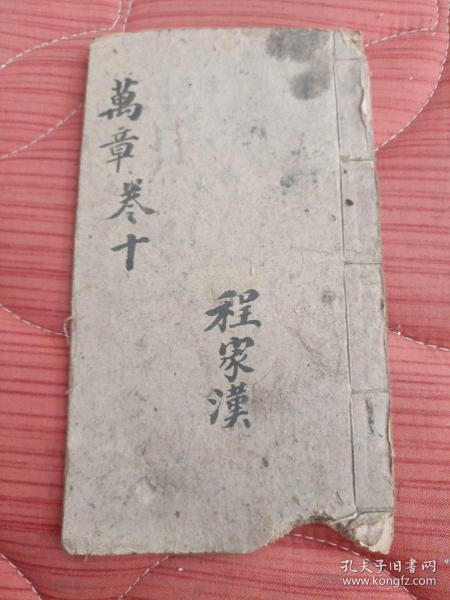 萬章卷十
程家漢
孔夫子旧书网
www.kongfz.com